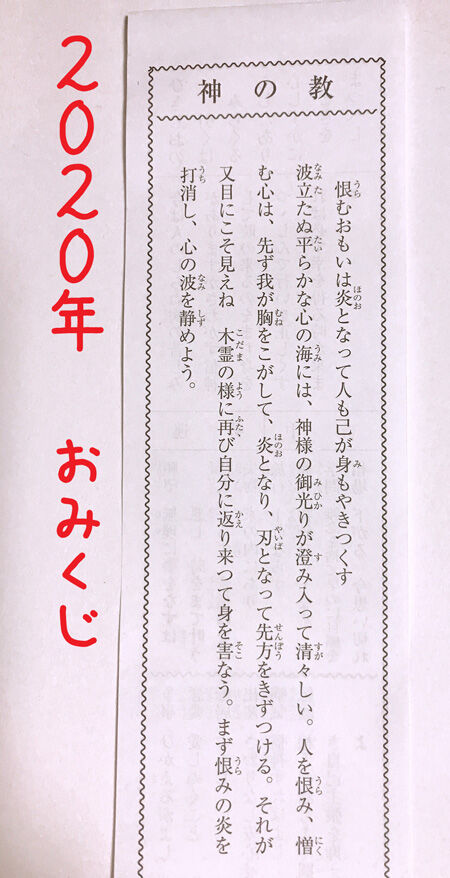 2020年 おみくじ
神の教
恨むおもいは炎となって人も己が身もやきつくす
波立たぬ平らかな心の海には、神様の御光りが澄み入って清々しい。人を恨み、憎
む心は、先ず我が胸をこがして、炎となり、刃となって先方をきずつける。それが
又目にこそ見えね 木霊の様に再び自分に返り来つて身を害なう。まず恨みの炎を
打消し、心の波を静めよう。